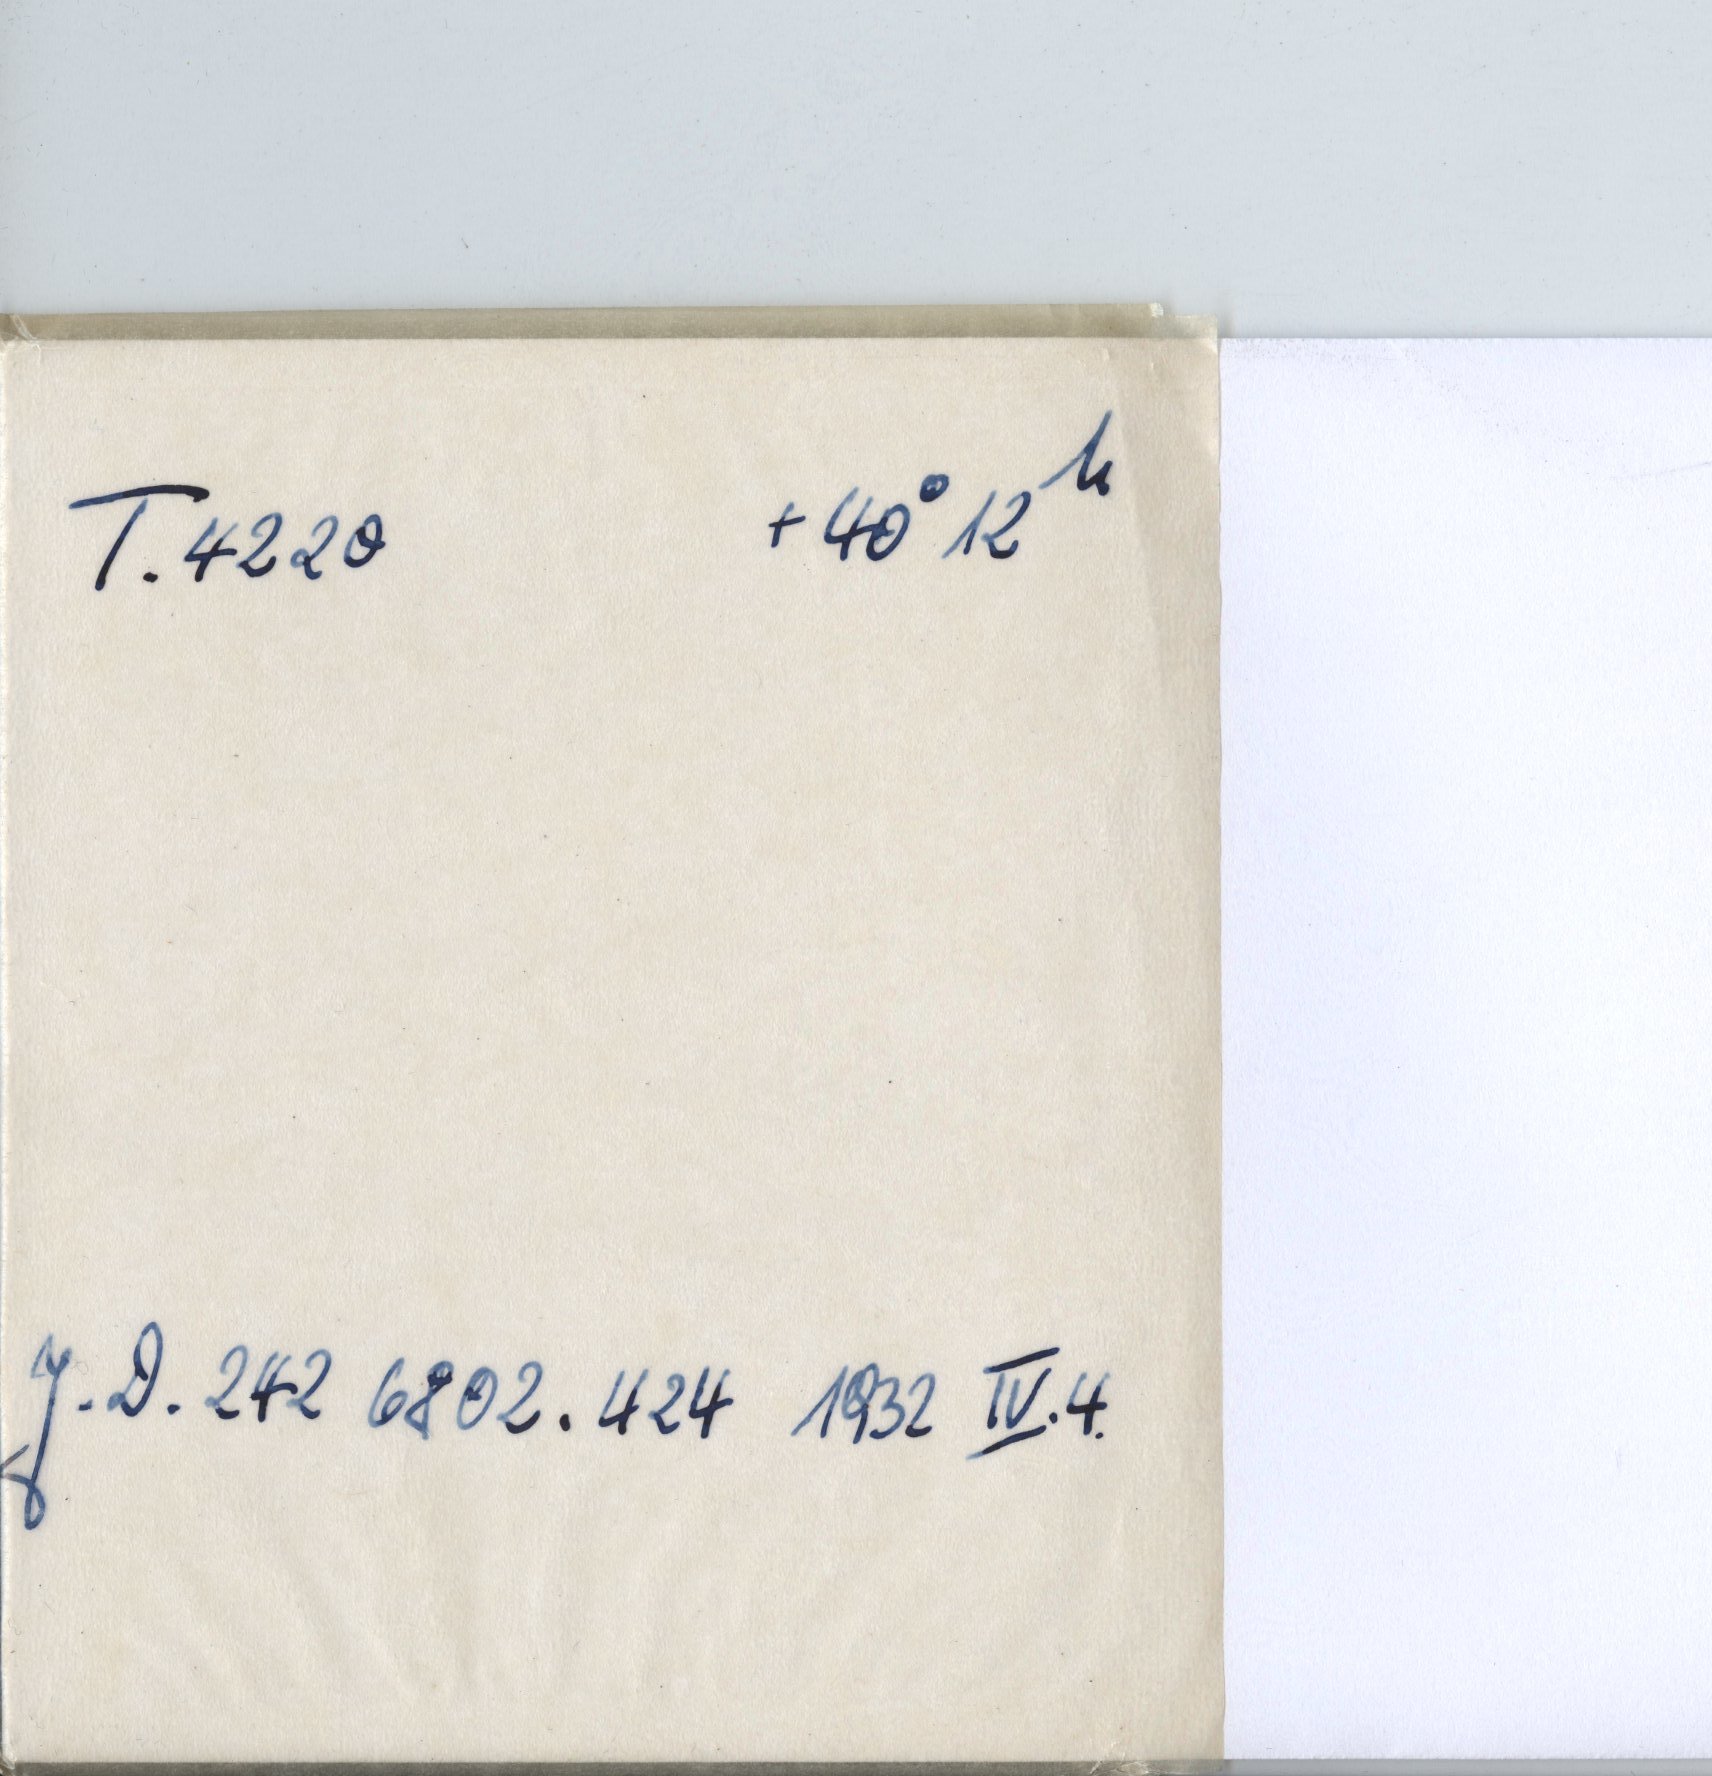 T. 4220 +40° 12ʰ
J. D. 242 6802.424 1932 IV. 4.